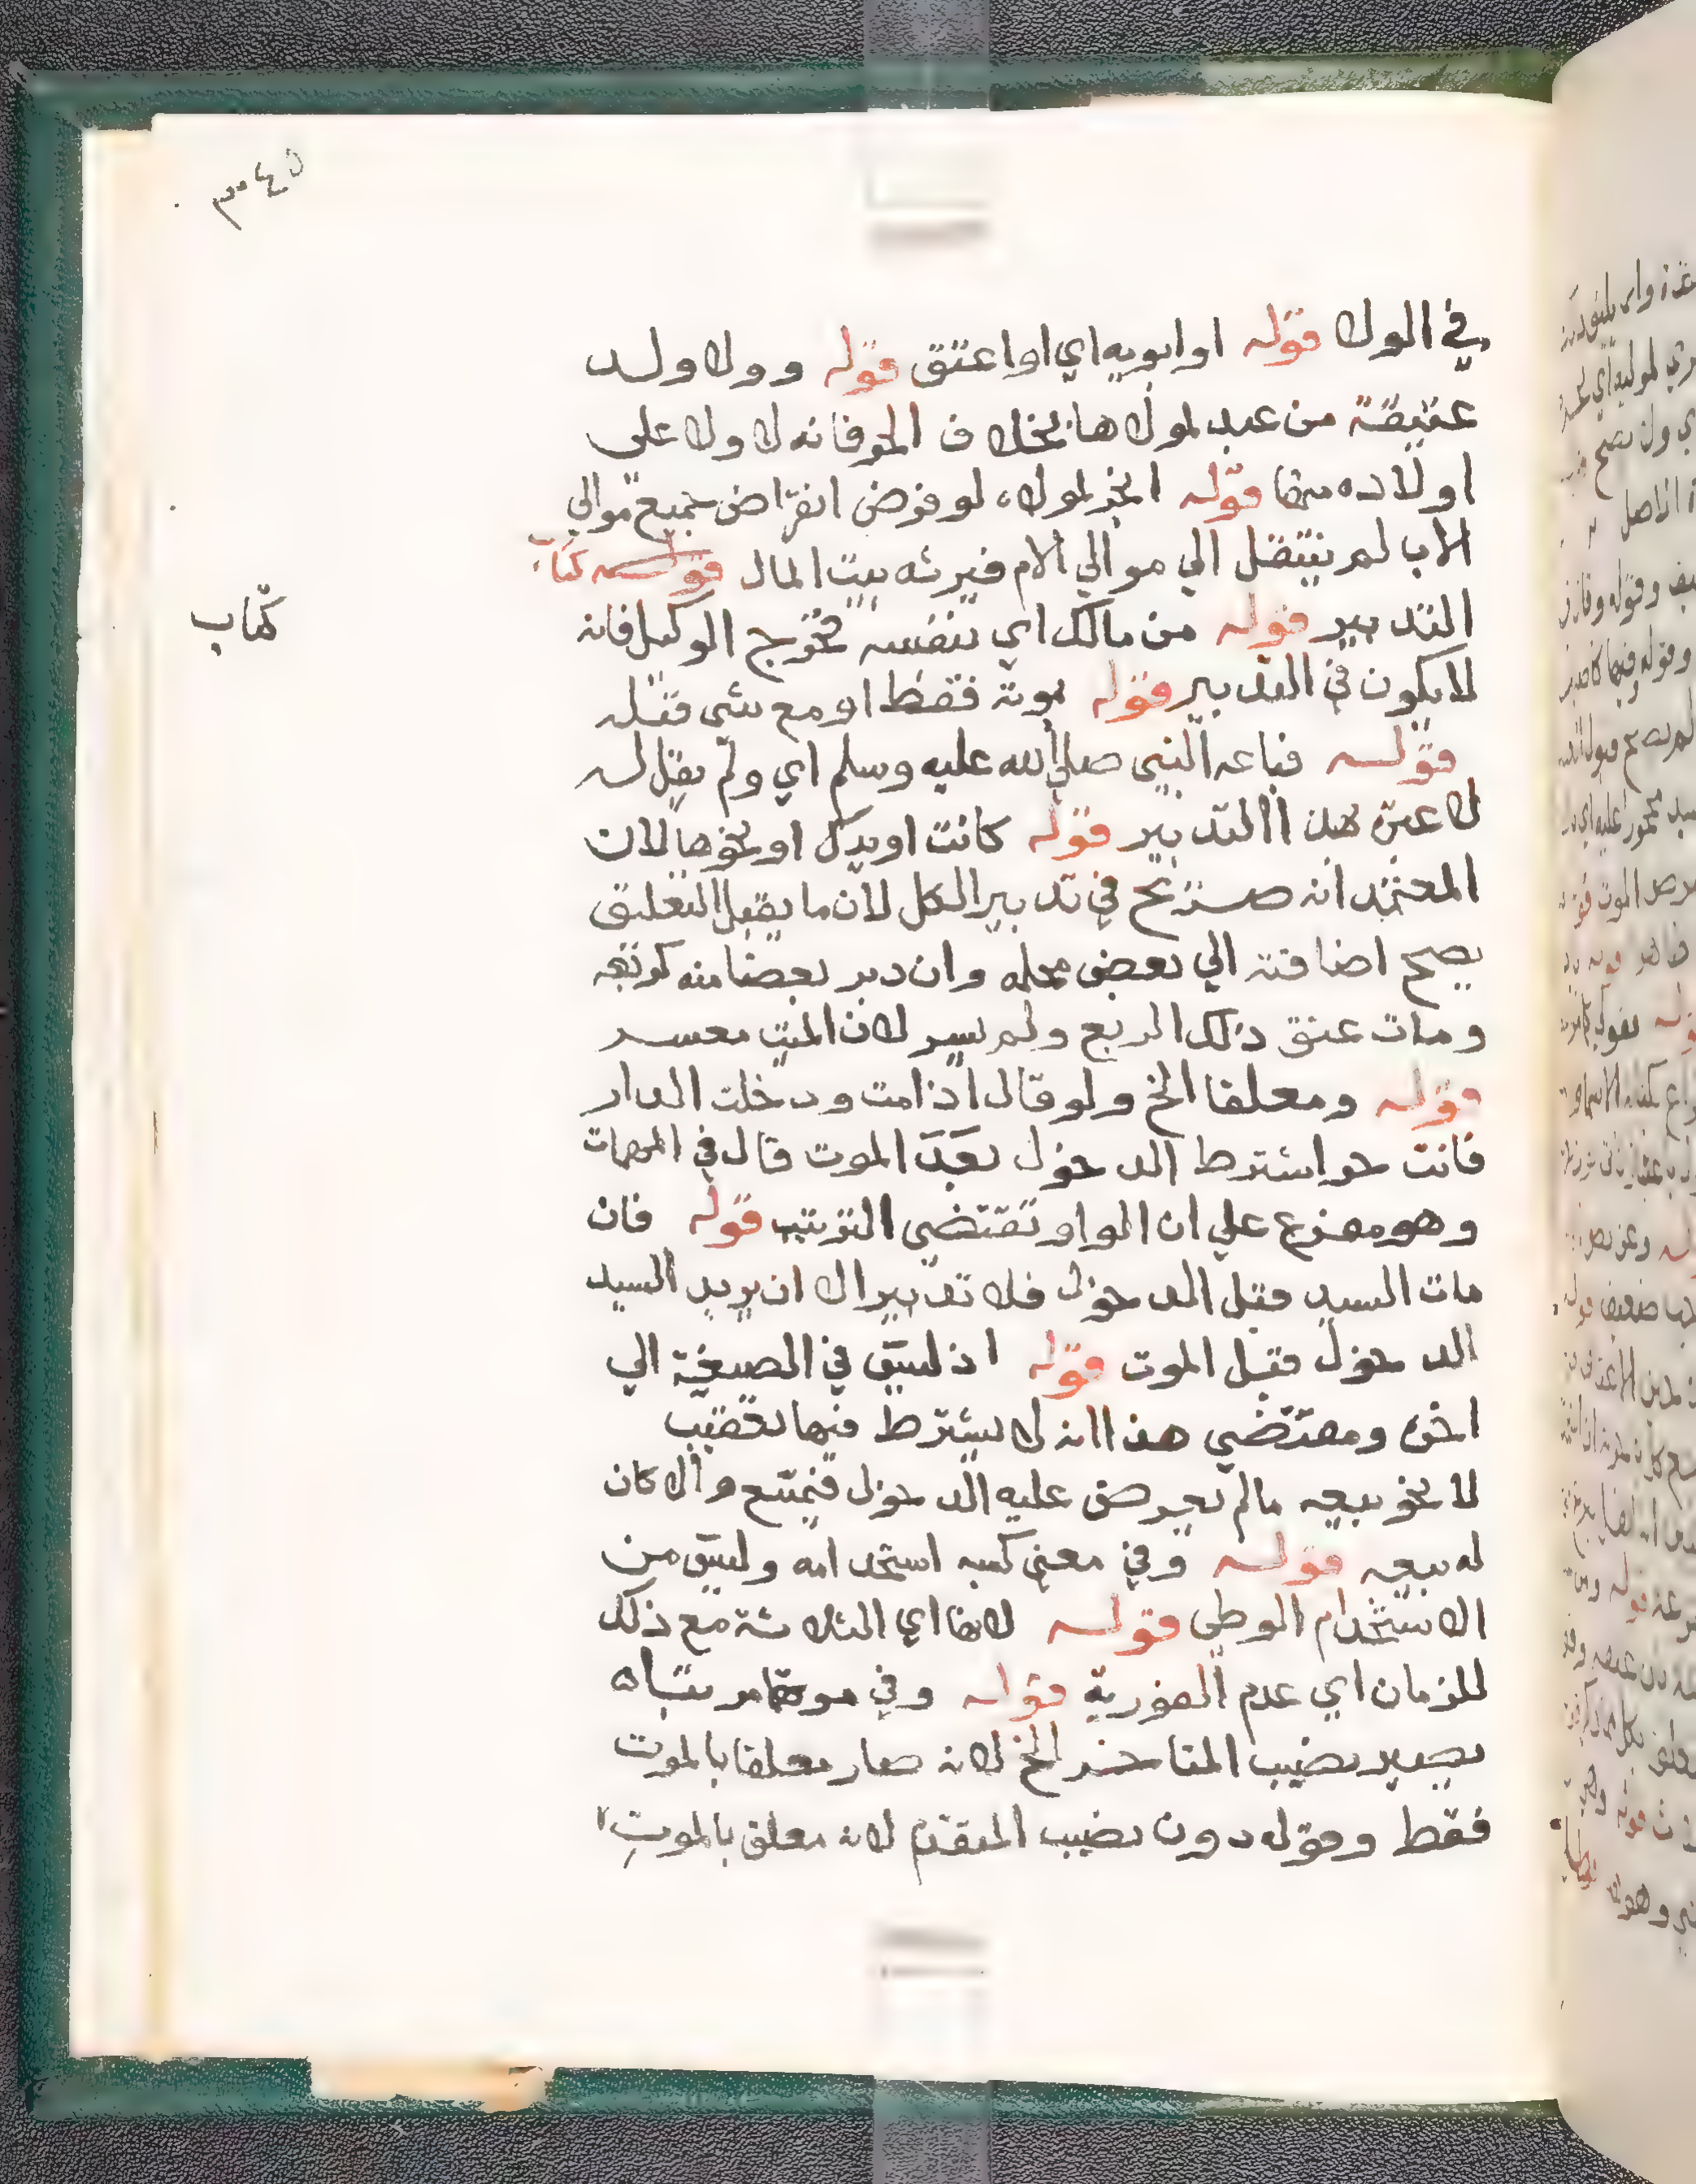 ٣٤٥
في الولا قوله او ابويه اي او اعتق قوله وولا ولد
عتيقة من عبد لمولاها بخلاف الحر فانه لا ولا على
اولاده منها قوله انجر لمولاه لو فرض انقراض جميع موالي
الاب لم ينتقل الي موالي الام فيرثه بيت المال قوله كتاب
كتاب
التدبير قوله من مالك اي بنفسه تخرج الوكيل فانه
لا يكون في التدبير قوله بموته فقط او مع شي قبله
قوله فباعه النبي صلي الله عليه وسلم اي ولم يقل له
لا عبرة هذا التدبير قوله كانت او يدك او نحوها لان
المعتمد انه صريح في تدبير الكل لان ما يقبل التعليق
يصح اضافته الي بعض محله وان دبر بعضا منه كربعه
ومات عتق ذلك الربع ولم يسر لان الميت معسر
قوله ومعلقا الخ ولو قال اذا مت ودخلت الدار
فانت حر اشترط الدخول بعد الموت قال في المهمات
وهو مفرع علي ان الواو تقتضي الترتيب قوله فان
مات السيد قبل الدخول فلا تدبير الا ان يريد السيد
الدخول قبل الموت قوله اذ ليس في الصيغة الي
اخره ومقتضي هذا انه لا يشترط فيها تعقيب
لا نحو بيعه ما لم يعرض عليه الدخول فيمتنع والا كان
له بيعه قوله وفي معني كسبه استخدامه وليس من
الاستخدام الوطي قوله لانها اي الثلاثة مع ذلك
للزمان اي عدم الفورية قوله وفي موتهما مرتبا ه
يصير نصيب المتاخر الخ لانه صار معلقا بالموت
فقط وقوله دون نصيب المتقدم لانه معلق بالموت